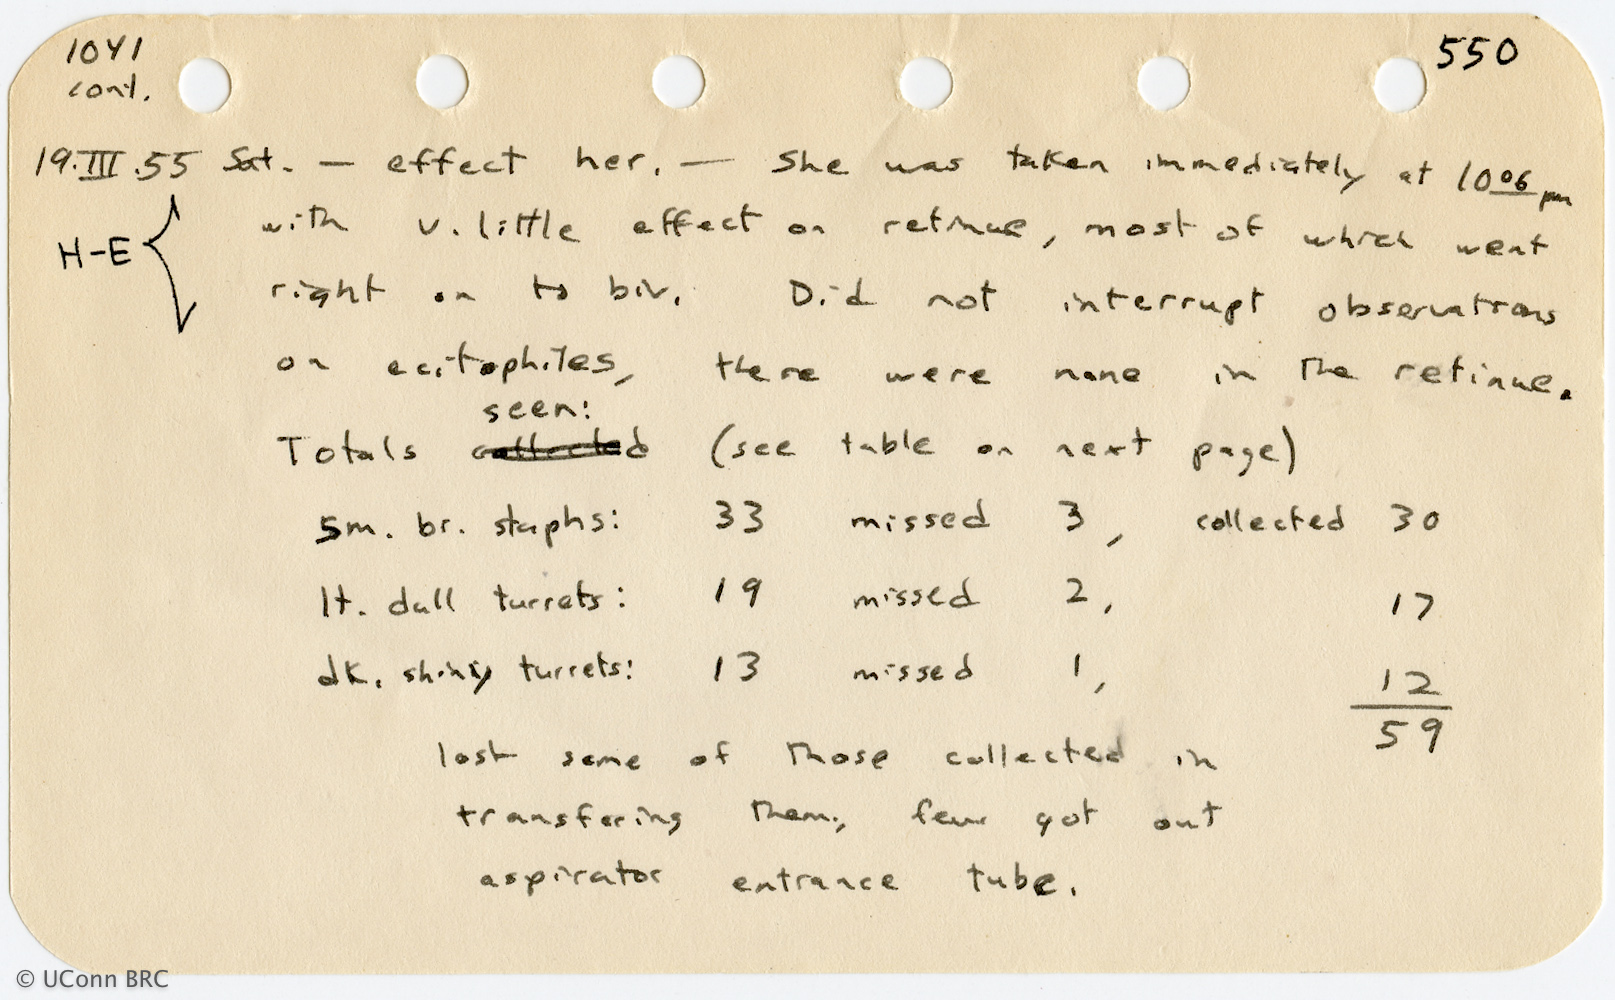 1041
cont.
550
19.III.55 Sat. — effect her. — She was taken immediately at 10 06 pm
H-E
with v. little effect on retinue, most of which went
right on to biv. Did not interrupt observations
on ecitophiles, there were none in the retinue.
seen:
Totals collected (see table on next page)
Sm. br. staphs: 33 missed 3, collected 30
lt. dull turrets: 19 missed 2, 17
dk. shiny turrets: 13 missed 1, 12
59
lost some of those collected in
transfering them, few got out
aspirator entrance tube.
© UConn BRC